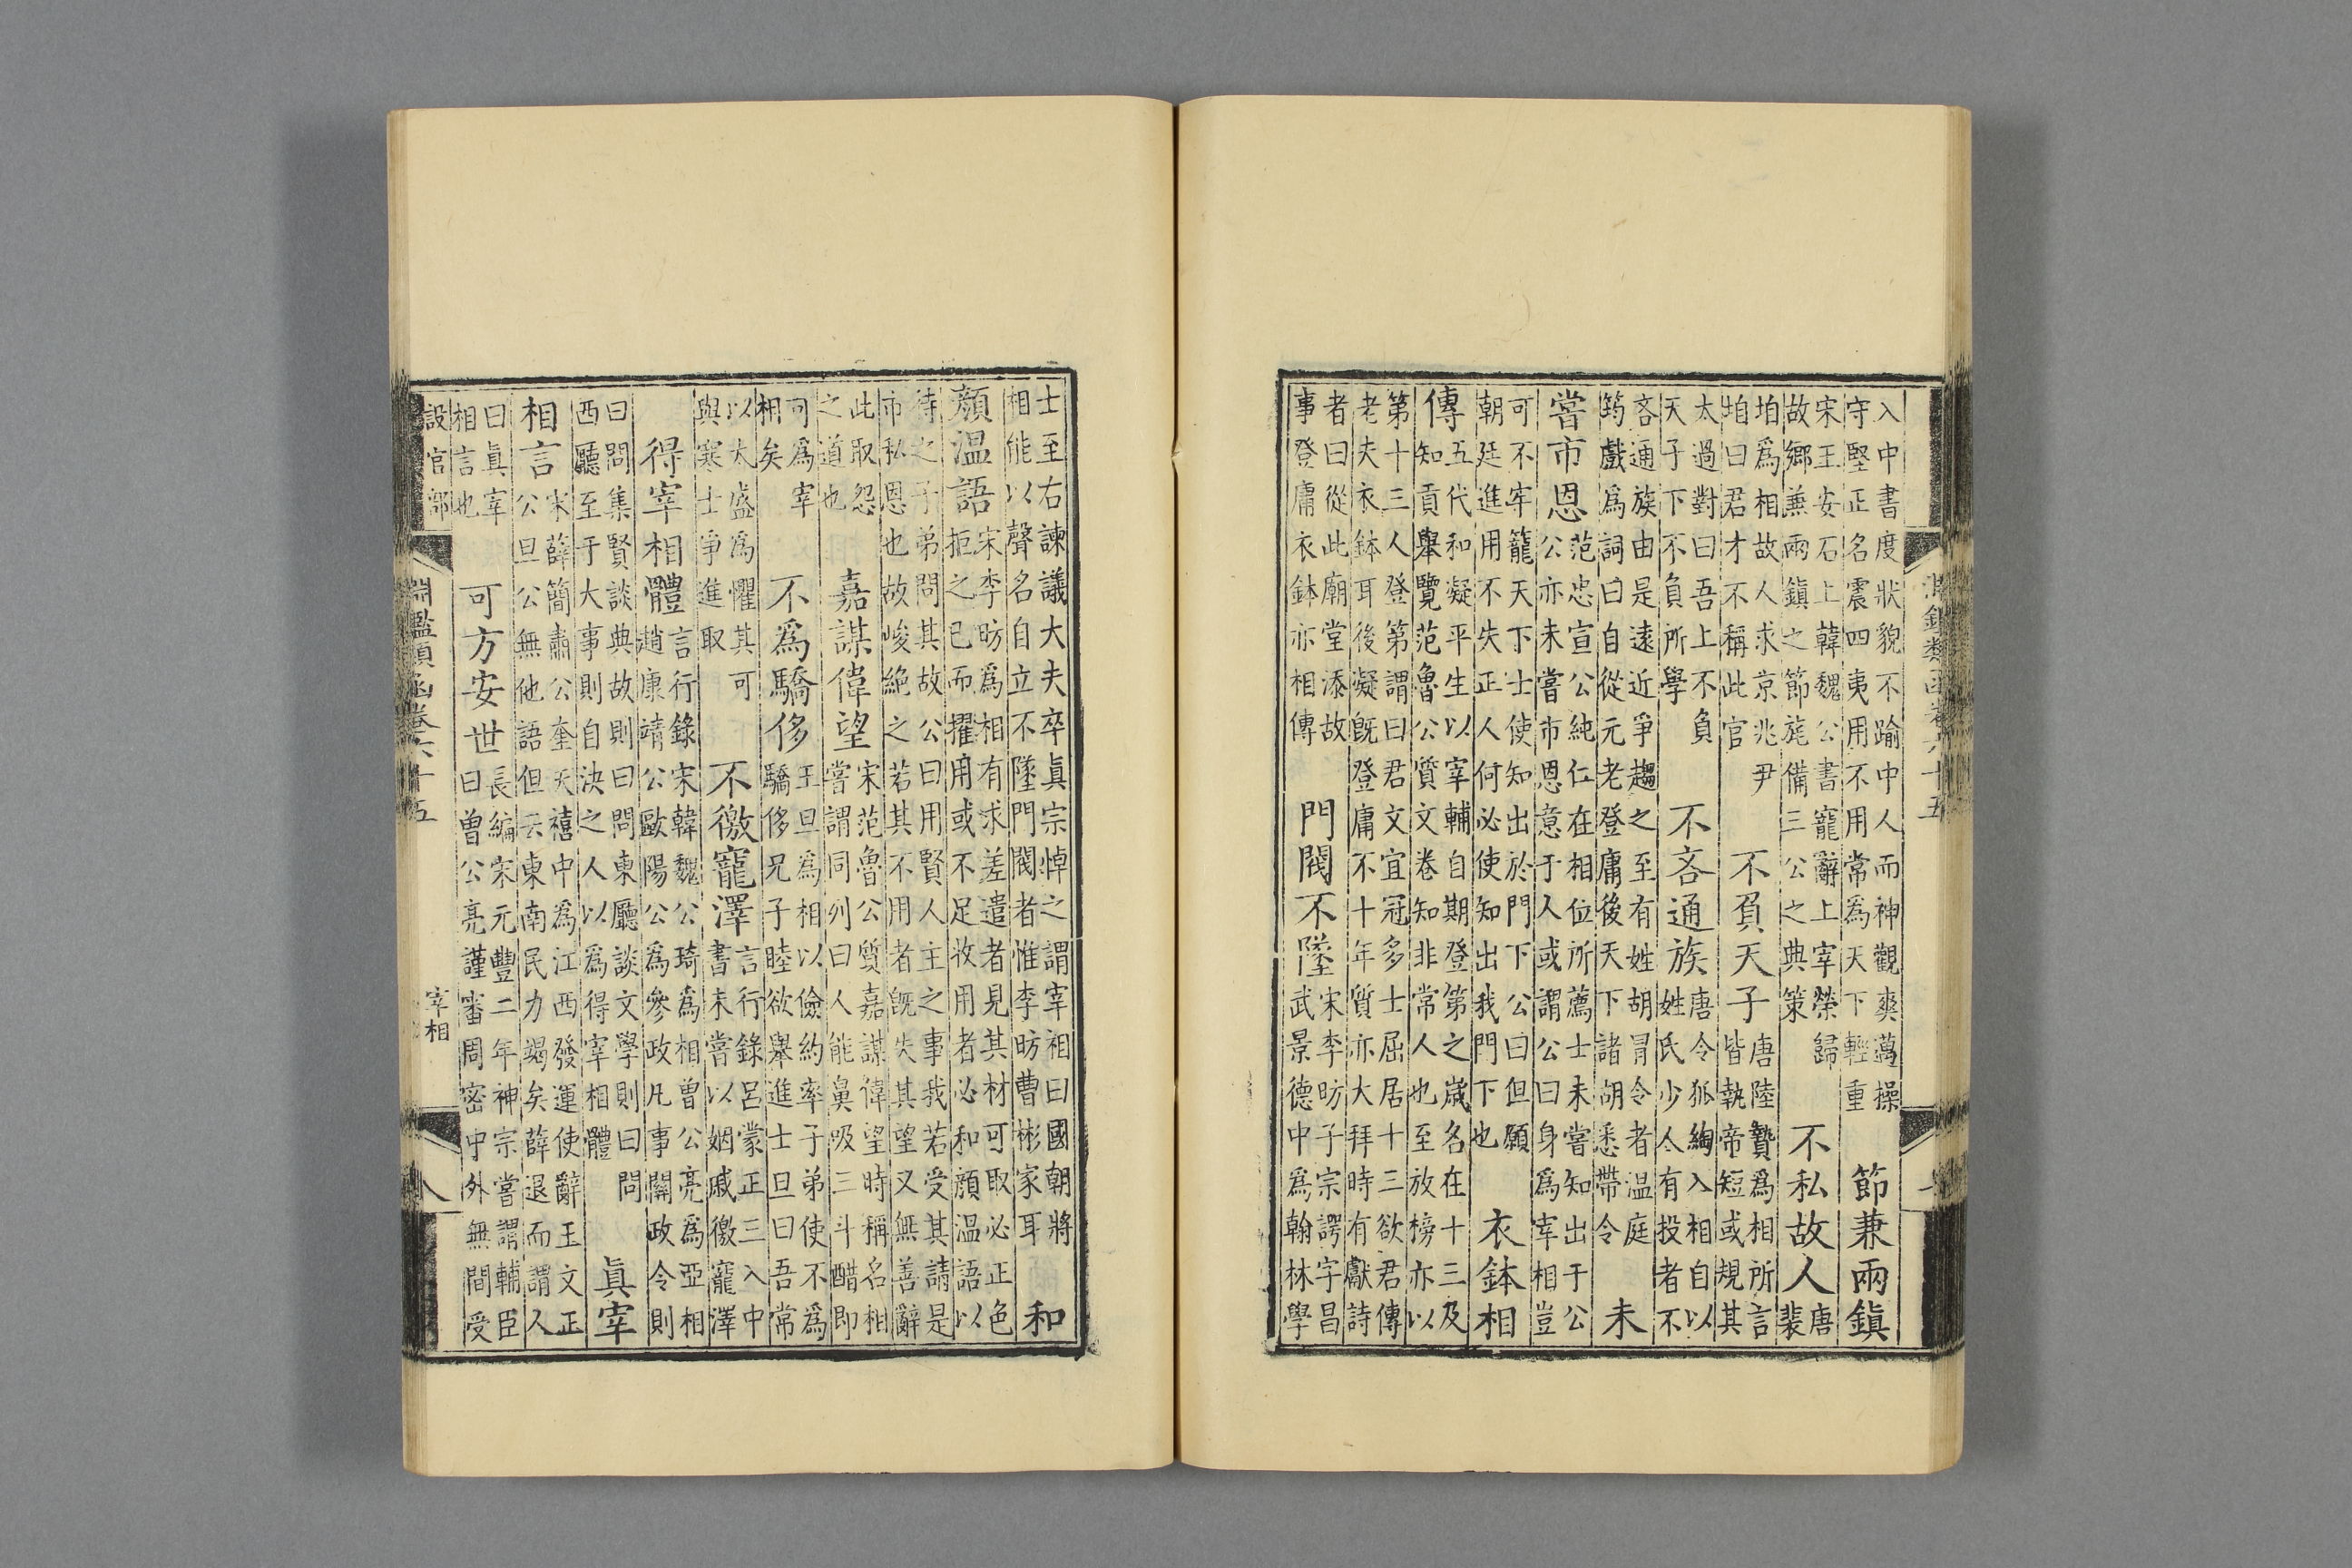 入中書度狀貌不踰中人而神觀爽邁操
守堅正名震四夷用不用常為天下輕重
節兼兩鎮
宋王安石上韓魏公書寵辭上宰榮歸
故鄉兼兩鎮之節旄備三公之典策
不私故人
唐
裴
垍為相故人求京兆尹
垍曰君才不稱此官
不負天子
唐陸贄為相所言
皆執帝短或規其
太過對曰吾上不負
天子下不負所學
不吝通族
唐令狐綯入相自以
姓氏少人有投者不
吝通族由是遠近爭趨之至有姓胡冒令者溫庭
筠戲為詞曰自從元老登庸後天下諸胡悉帶令
未
嘗市恩
范忠宣公純仁在相位所薦士未嘗知出于公
公亦未嘗市恩意于人或謂公曰身為宰相豈
可不牢籠天下士使知出於門下公曰但願
朝廷進用不失正人何必使知出我門下也
衣鉢相
傳
五代和凝平生以宰輔自期登第之歲名在十三及
知貢舉覽范魯公質文卷知非常人也至放榜亦以
第十三人登第謂曰君文宜冠多士屈居十三欲君傳
老夫衣鉢耳後凝既登庸不十年質亦大拜時有獻詩
者曰從此廟堂添故
事登庸衣鉢亦相傳
門閥不墜
宋李昉子宗諤字昌
武景德中為翰林學
士至右諫議大夫卒眞宗悼之謂宰相曰國朝將
相能以聲名自立不墜門閥者惟李昉曹彬家耳
和
顏溫語
宋李昉為相有求差遣者見其材可取必正色
拒之已而擢用或不足收用者必和顏溫語以
待之子弟問其故公曰用賢人主之事我若受其請是
市私恩也故峻絶之若其不用者旣失其望又無善辭
此取怨
之道也
嘉謀偉望
宋范魯公質嘉謀偉望時稱名相
嘗謂同列曰人能鼻吸三斗醋即
可為宰
相矣
不為驕侈
王旦為相以儉約率子弟使不為
驕侈兄子睦欲舉進士旦曰吾常
以太盛為懼其可
與寒士爭進取
不徼寵澤
言行錄呂蒙正三入中
書未嘗以姻戚徼寵澤
得宰相體
言行錄宋韓魏公琦為相曾公亮為亞相
趙康靖公歐陽公為參政凡事關政令則
曰問集賢談典故則曰問東廳談文學則曰問
西廳至于大事則自決之人以為得宰相體
眞宰
相言
宋薛簡肅公奎天禧中為江西發運使辭王文正
公旦公無他語但云東南民力竭矣薛退而謂人
曰眞宰
相言也
可方安世
長編宋元豐二年神宗嘗謂輔臣
曰曾公亮謹審周密中外無間受
設官部
淵鑑類函卷六十五
宰相
八